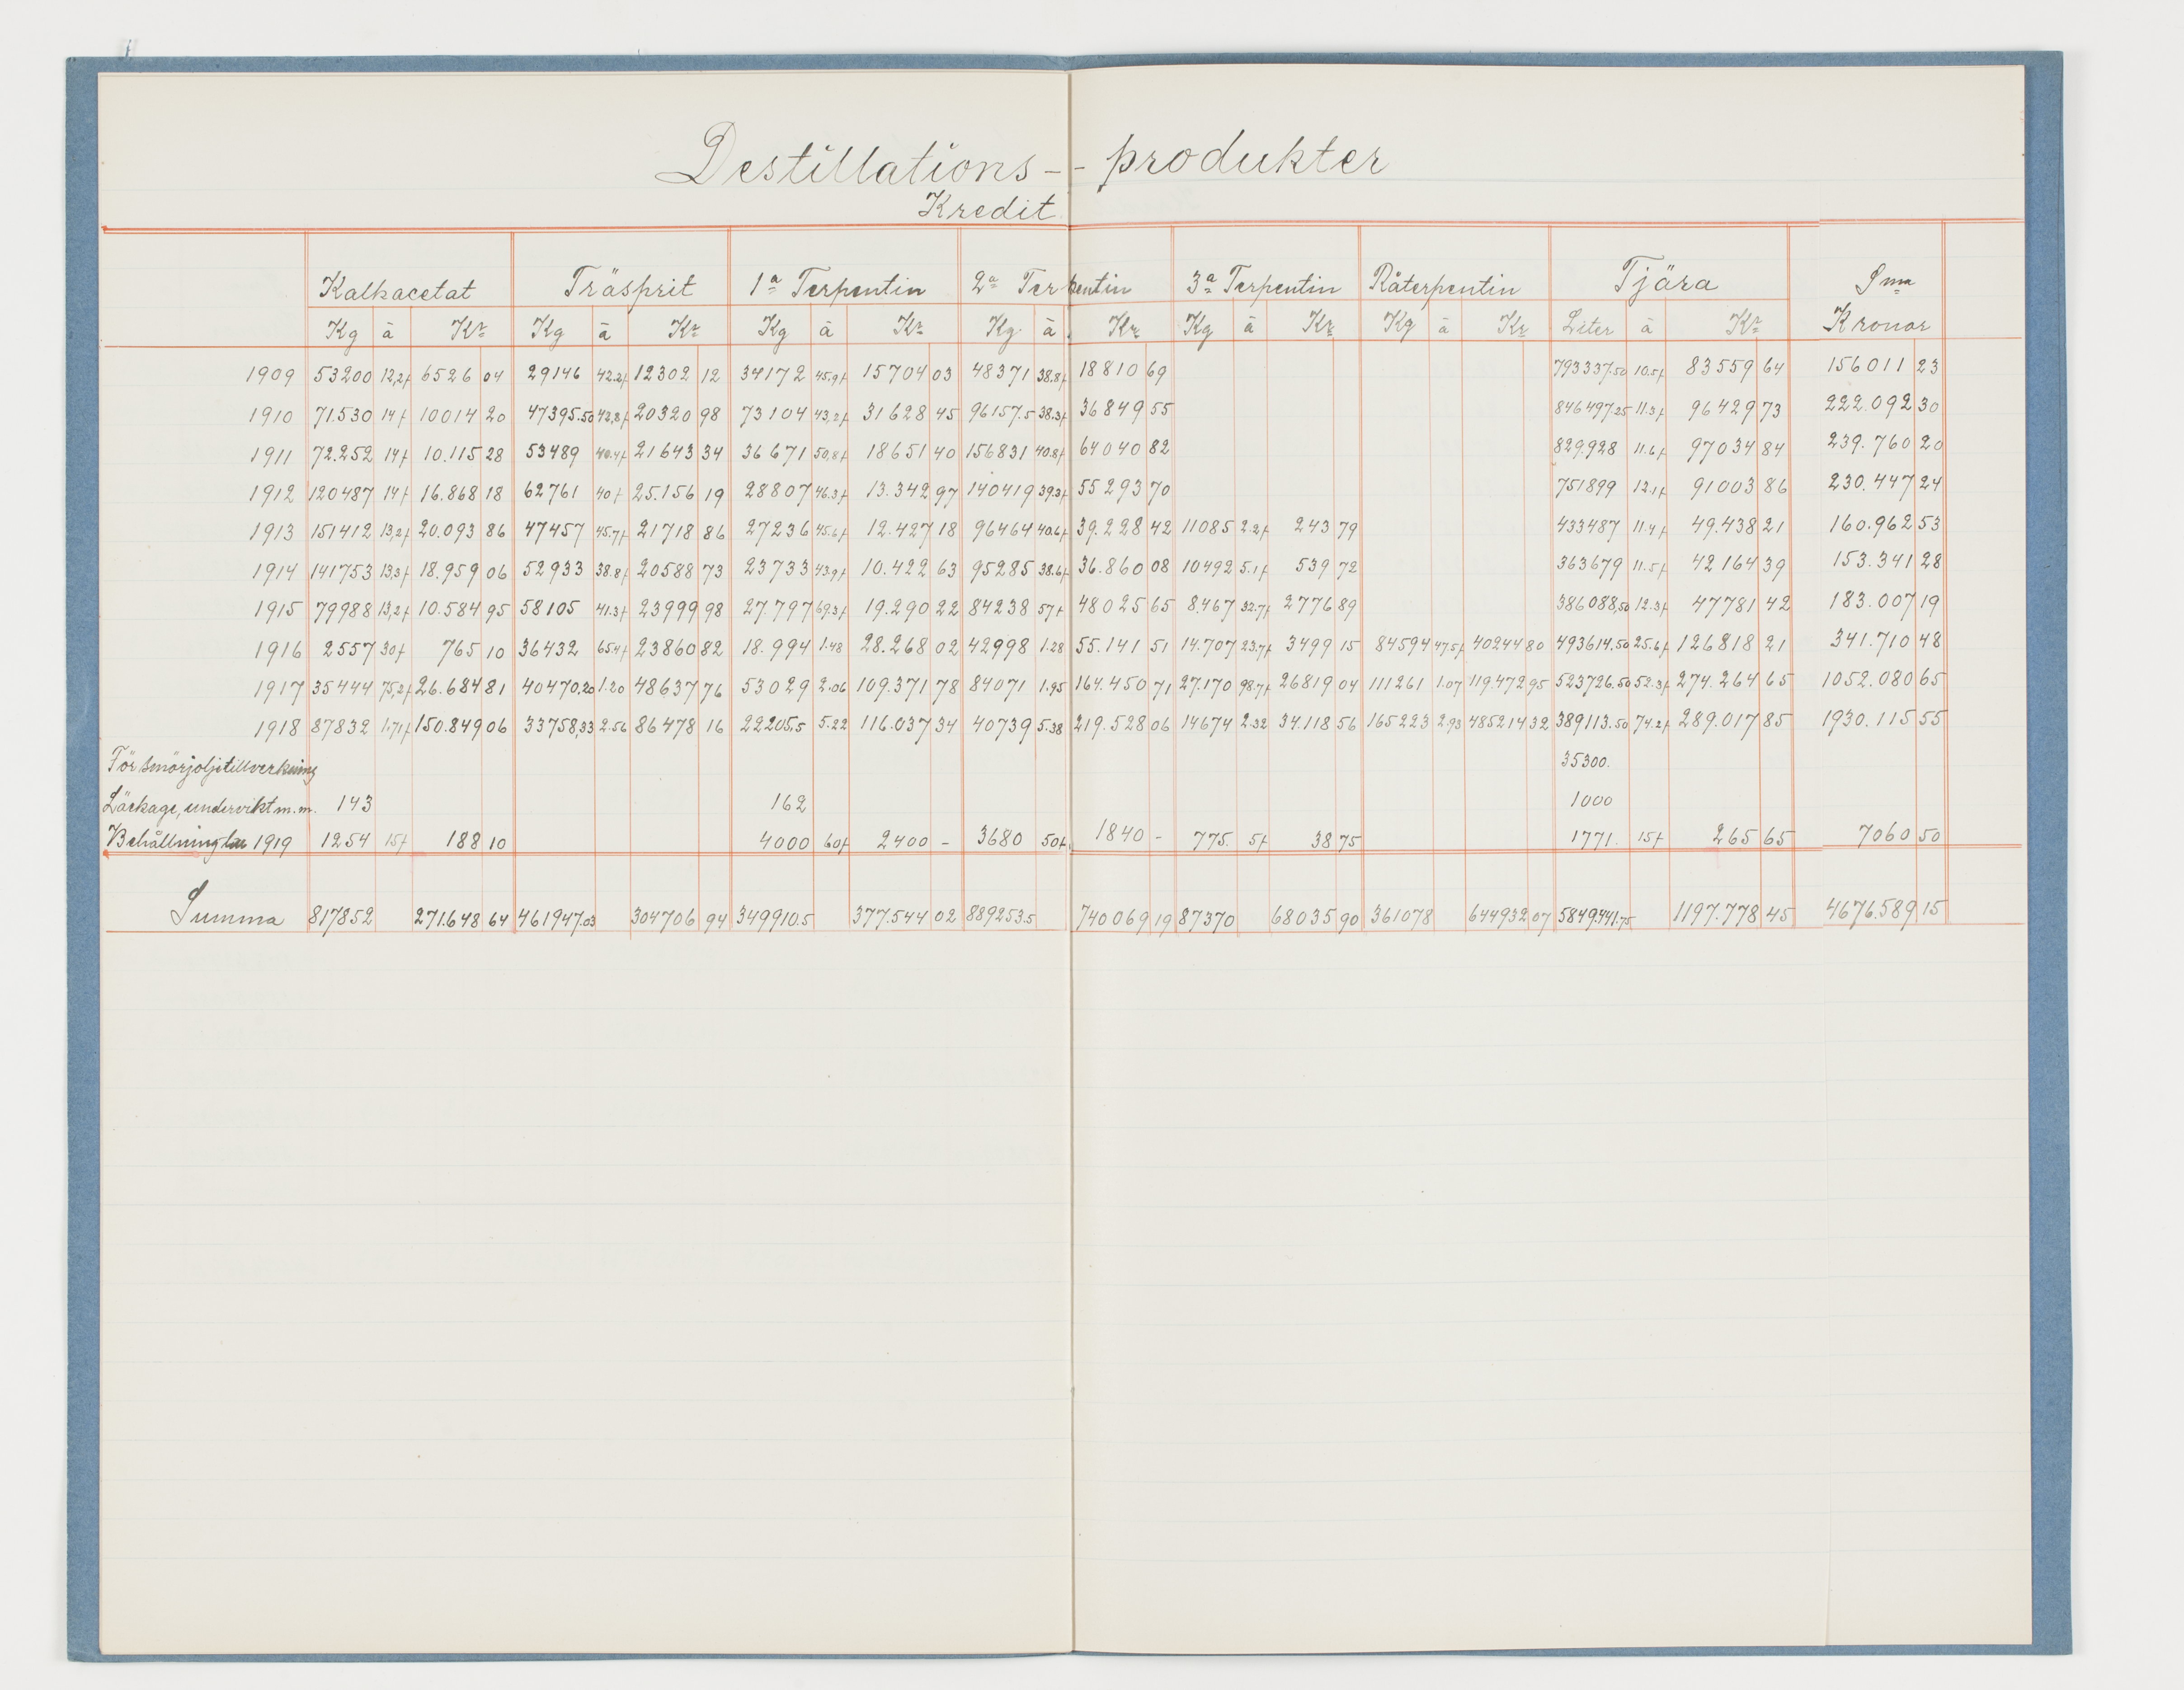 Destillations-- produkter
Kredit
Kalkacetat Träsprit 1a Terpentin 2a Terpentin 3a Terpentin Råterpentin Tjära Sma
Kg à Kr Kg à Kr Kg à Kr Kg à Kr Kg à Kr Kg à Kr Liter à Kr Kronor
1909 53200 12,2f 6526 04 29146 42.2f 12302 12 34172 45.9f 15704 03 48371 38.8f 18810 69 793337.50 10.5f 83559 64 156011 23
1910 71.530 14f 10014 20 47395.50 42,8f 20320 98 73104 43,2f 31628 45 96157.5 38.3f 36849 55 846497.25 11.3f 96429 73 222.092 30
1911 72.252 14f 10.115 28 53489 40.4f 21643 34 36671 50,8f 18651 40 156831 40.8f 64040 82 829.928 11.6f 97034 84 239.760 20
1912 120487 14f 16.868 18 62761 40f 25.156 19 28807 46.3f 13.342 97 140419 39.3f 55293 70 751899 12.1f 91003 86 230.447 24
1913 151412 13,2f 20.093 86 47457 45.7f 21718 86 27236 45.6f 12.427 18 96464 40.6f 39.228 42 11085 2.2f 243 79 433487 11.4f 49.438 21 160.962 53
1914 141753 13,3f 18.959 06 52933 38.8f 20588 73 23733 43.9f 10.422 63 95285 38.6f 36.860 08 10492 5.1f 539 72 363679 11.5f 42164 39 153.341 28
1915 79988 13,2f 10.584 95 58105 41.3f 23999 98 27.797 69.3f 19.290 22 84238 57f 48025 65 8.467 32.7f 2776 89 386088,50 12.3f 47781 42 183.007 19
1916 2557 30f 765 10 36432 65.4f 23860 82 18.994 1.48 28.268 02 42998 1.28 55.141 51 14.707 23.7f 3499 15 84594 47.5f 40244 80 493614.50 25.6f 126818 21 341.710 48
1917 35444 75,2f 26.684 81 40470,20 1.20 48637 76 53029 2.06 109.371 78 84071 1.95 164.450 71 27.170 98.7f 26819 04 111261 1.07 119.472 95 523726.50 52.3f 274.264 65 1052.080 65
1918 87832 1.71f 150.849 06 33758,33 2.56 86478 16 22205,5 5.22 116.037 34 40739 5.38 219.528 06 14674 2.32 34.118 56 165223 2.93 485214 32 389113.50 74.2f 289.017 85 1930.115 55
För smörjoljetillverkning 35300.
Läckage, undervikt m.m. 143 162 1000
Behållning 1919 1254 15f 188 10 4000 60f 2400 - 3680 50f 1840 - 775. 5f 38 75 1771. 15f 265 65 7060 50
Summa 817852 271.648 64 461947.03 304706 94 349910.5 377.544 02 889253.5 740069 19 87370 68035 90 361078 644932 07 5849.441.75 1197.778 45 4676.589 15